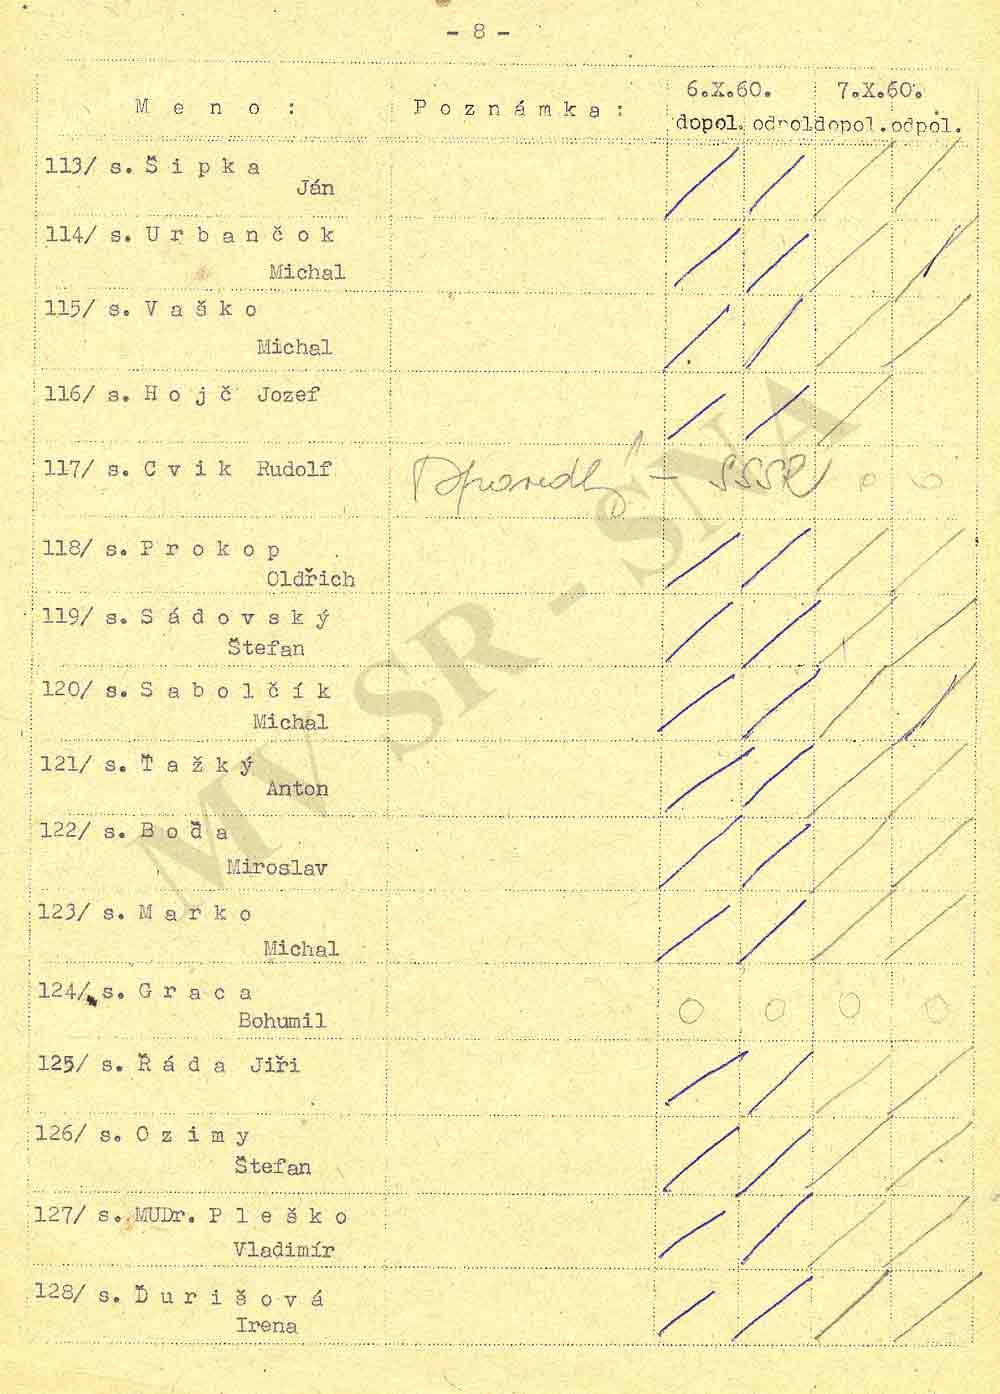 - 8 -
M e n o : P o z n á m k a : 6.X.60. 7.X.60.
dopol. odpol dopol. odpol.
113/ s. Š i p k a
Ján
114/ s. U r b a n č o k
Michal
115/ s. V a š k o
Michal
116/ s. H o j č Jozef
117/ s. C v i k Rudolf - SSSR
118/ s. P r o k o p
Oldřich
119/ s. S á d o v s k ý
Štefan
120/ s. S a b o l č í k
Michal
121/ s. Ť a ž k ý
Anton
122/ s. B o ď a
Miroslav
123/ s. M a r k o
Michal
124/ s. G r a c a
Bohumil
125/ s. Ř á d a Jiři
126/ s. O z i m y
Štefan
127/ s. MUDr. P l e š k o
Vladimír
128/ s. Ď u r i š o v á
Irena
MV SR - SNA